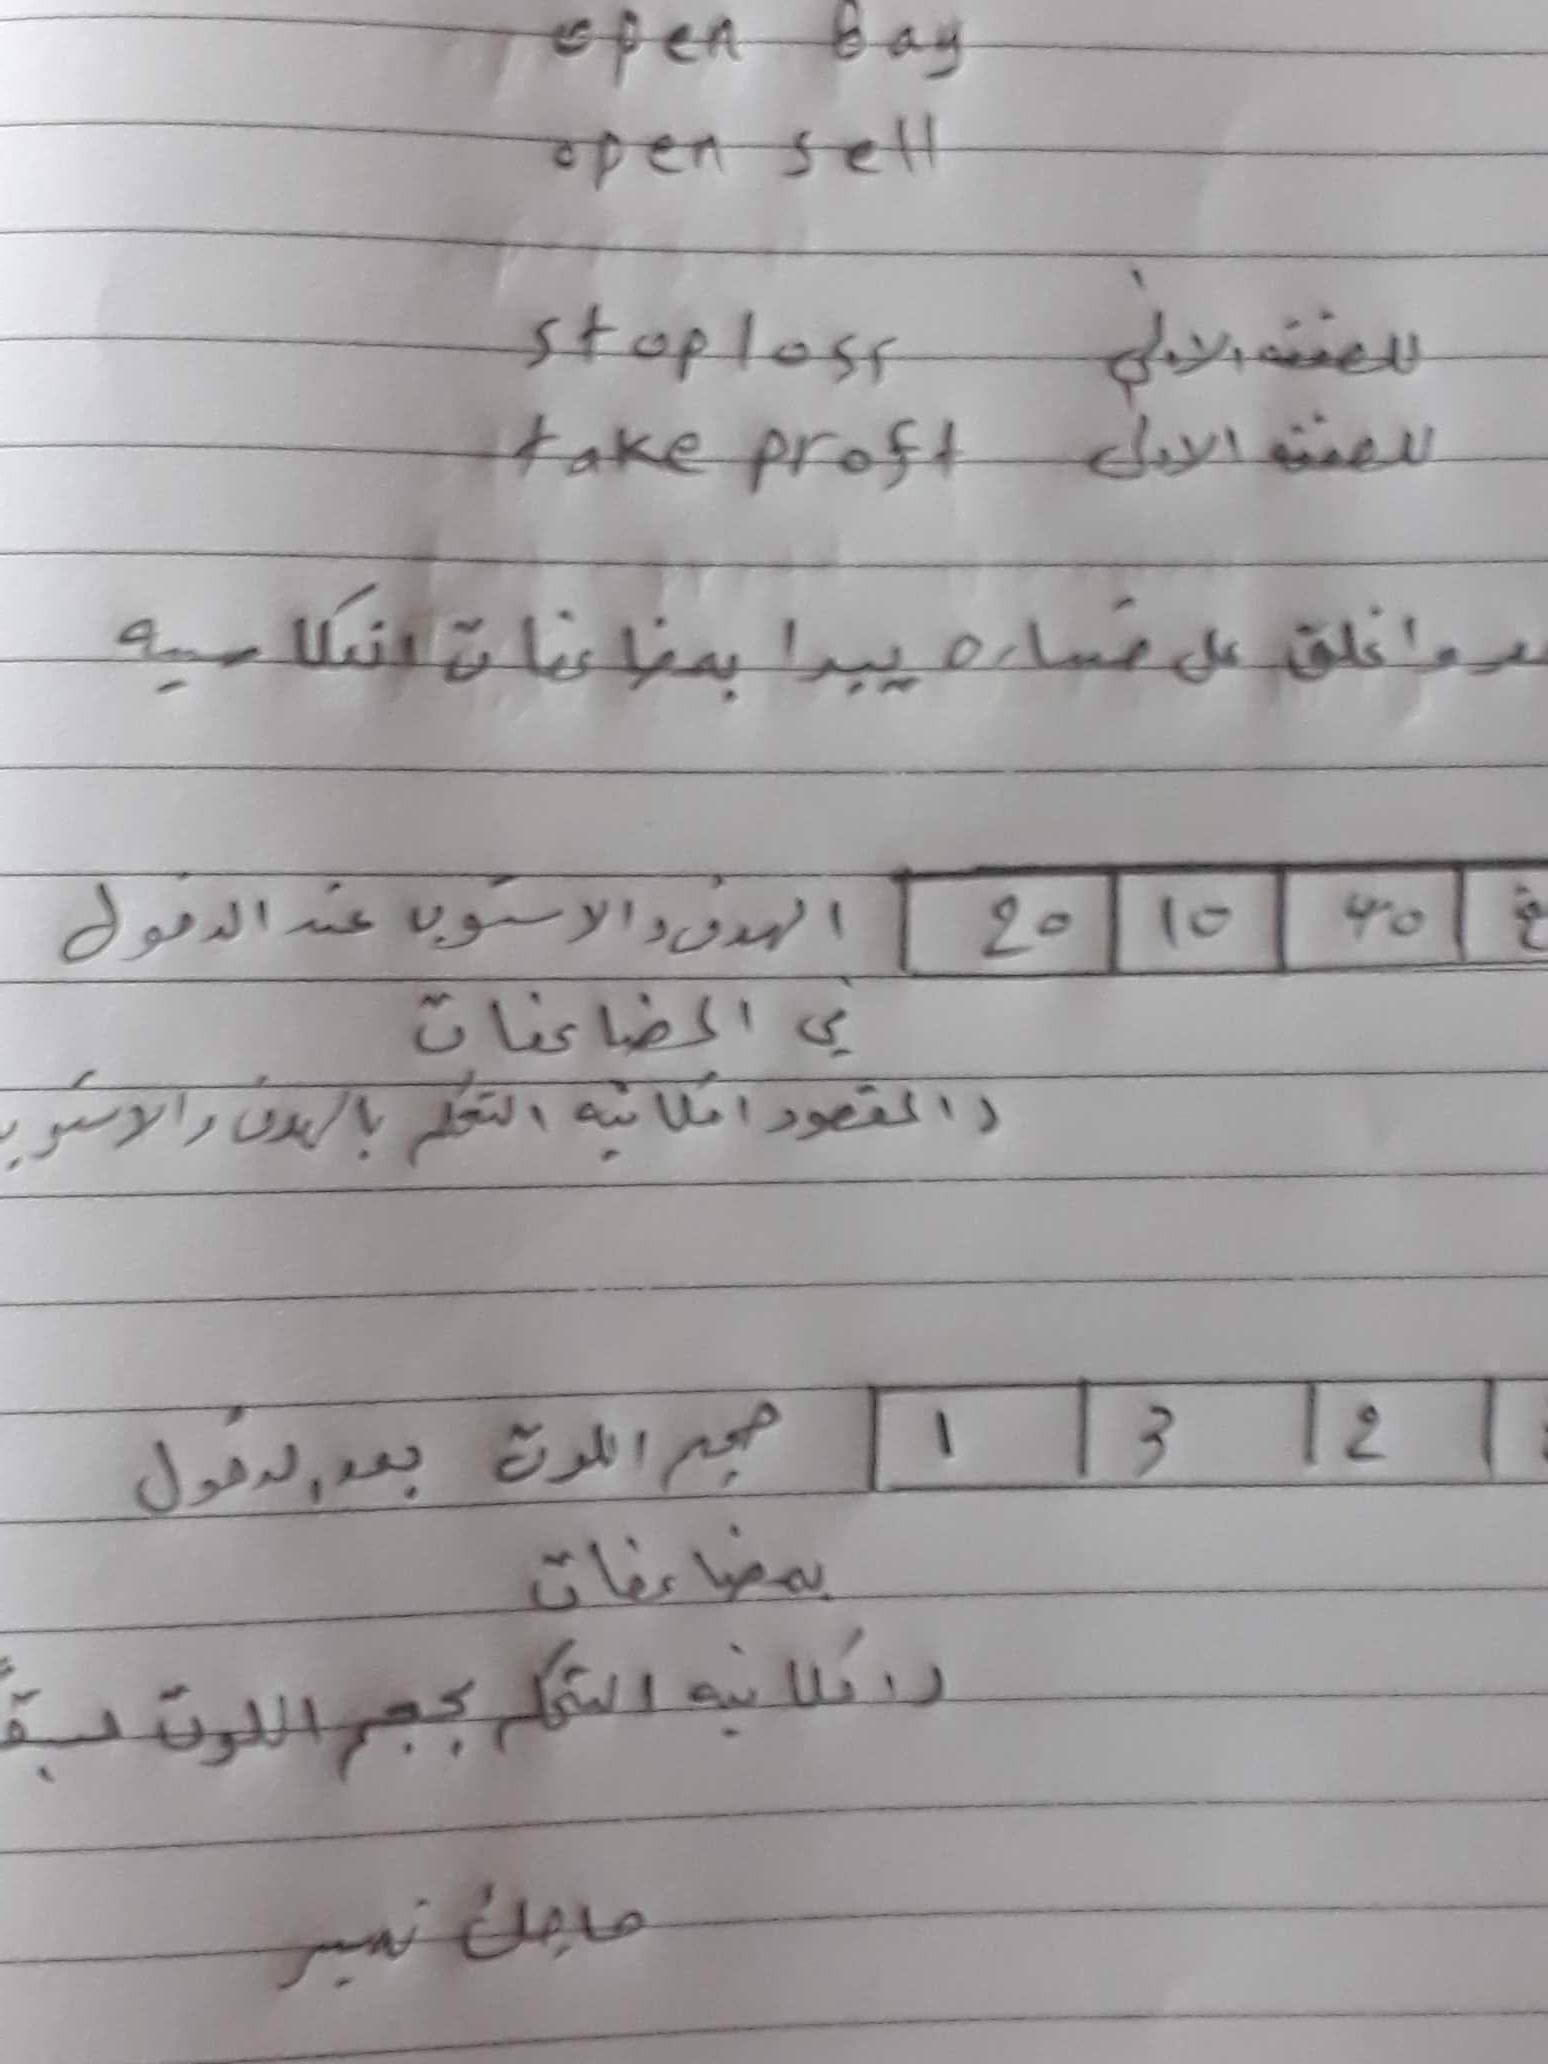 open bay
open sell
stoploss للصفقه الاولي
take proft للصفقه الاولى
اغلق على خساره يبدا بمضاعفات انعكاسيه
الهدف والاستوب عند الدخول 20 10 40
في المضاعفات
والمقصود امكانيه التحكم بالهدف والاستوب
حجم اللوت بعد الدخول 1 3 2
بمضاعفات
وامكانيه التحكم بحجم اللوت